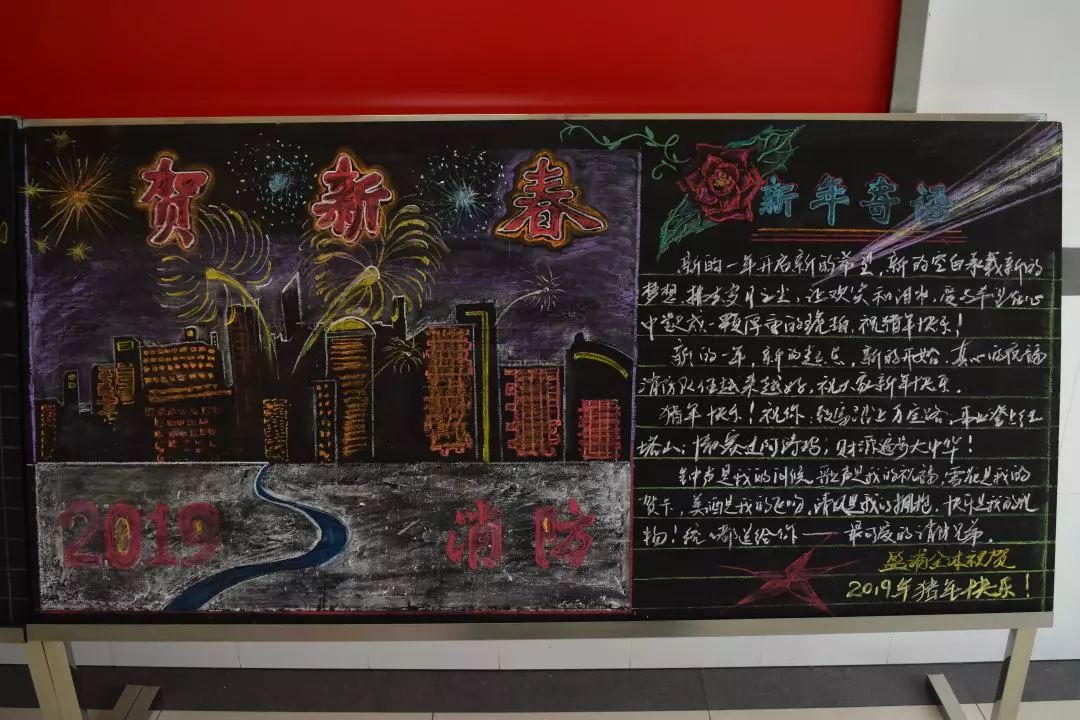 贺新春
2019 消防
新年寄语
新的一年开启新的希望,新的空白承载新的
梦想,拂去岁月之尘,让欢笑和泪水,爱与
中凝成一颗厚重的琥珀,祝猪年快乐!
新的一年,新的起点,新的开始,真心的祝福
消防队伍越来越好,祝大家新年快乐.
猪年快乐!祝你:
财源遍步大中华!
钟声是我的问候,歌声是我的祝福,雪花是我的
贺卡,美酒是我的飞吻,清风是我的拥抱,快乐是我的礼
物!统统都送给你——最可爱的
全体祝贺
2019年猪年快乐!